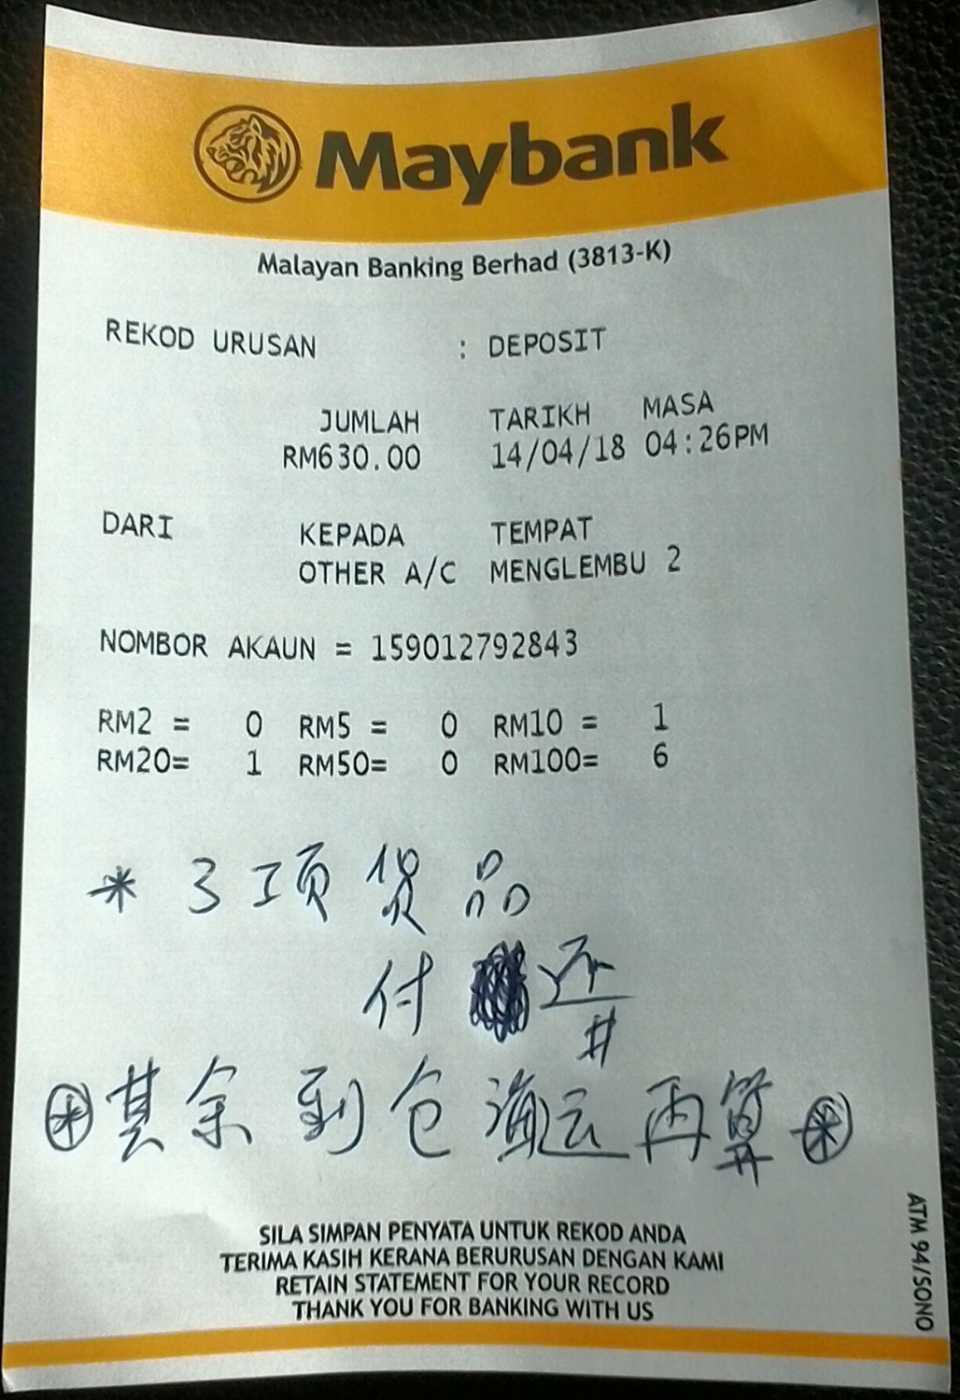 Maybank
Malayan Banking Berhad (3813-K)
REKOD URUSAN : DEPOSIT
JUMLAH TARIKH MASA
RM630.00 14/04/18 04:26PM
DARI KEPADA TEMPAT
OTHER A/C MENGLEMBU 2
NOMBOR AKAUN = 159012792843
RM2 = 0 RM5 = 0 RM10 = 1
RM20= 1 RM50= 0 RM100= 6
* 3项货品
付还#
*其余到仓海运再算*
SILA SIMPAN PENYATA UNTUK REKOD ANDA
TERIMA KASIH KERANA BERURUSAN DENGAN KAMI
RETAIN STATEMENT FOR YOUR RECORD
THANK YOU FOR BANKING WITH US
ATM 94/SONO